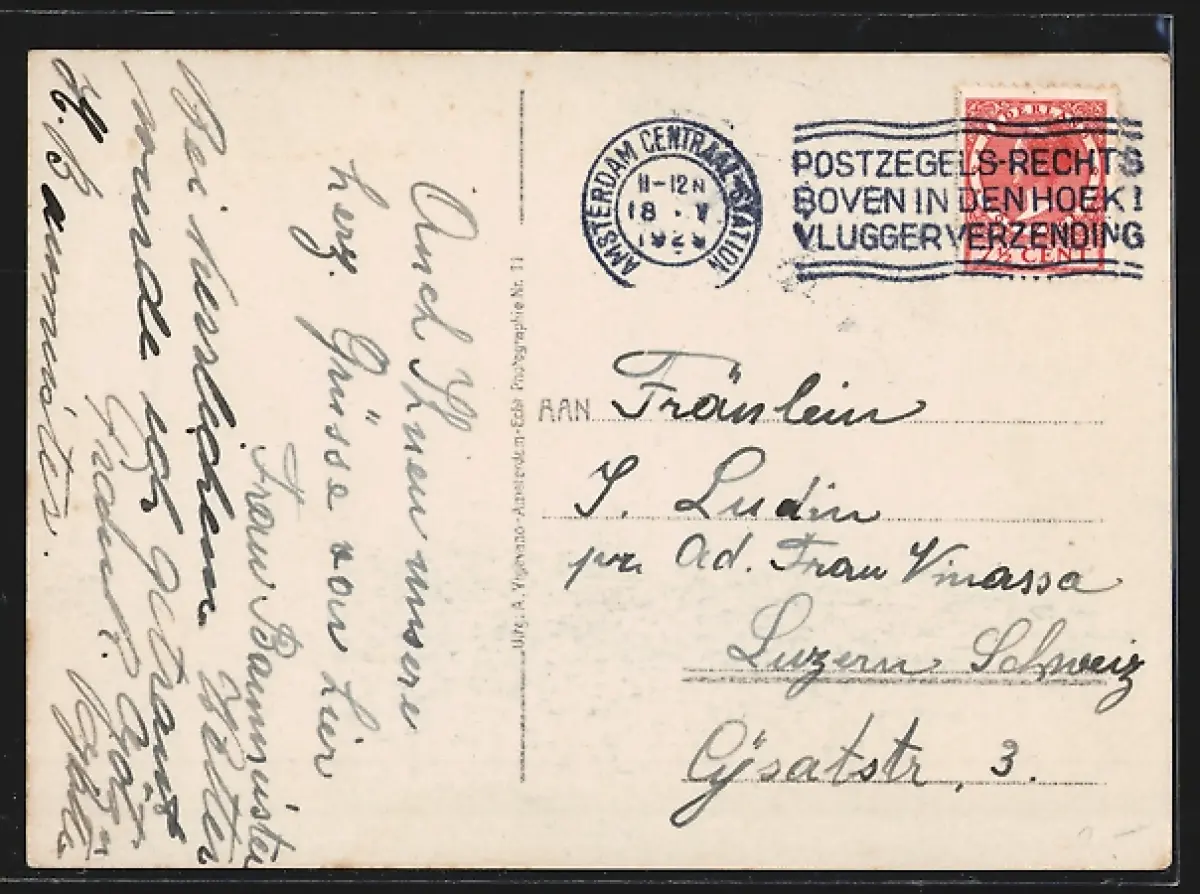 Auch Ihnen unsere
herz. Grüsse von hier
Frau Baumeister
Bei herrlichem Wetter
wurde
H. Baumeister.
Uitg. A. Vigevano - Amsterdam - Echt Photographie Nr. 11
AMSTERDAM CENTRAAL STATION
11-12 N
18 . V
1929
POSTZEGELS-RECHTS
BOVEN IN DEN HOEK!
VLUGGER VERZENDING
NEDERLAND
7½ CENT
AAN Fräulein
J. Ludin
pr. Ad. Frau Vinassa
Luzern Schweiz
3.